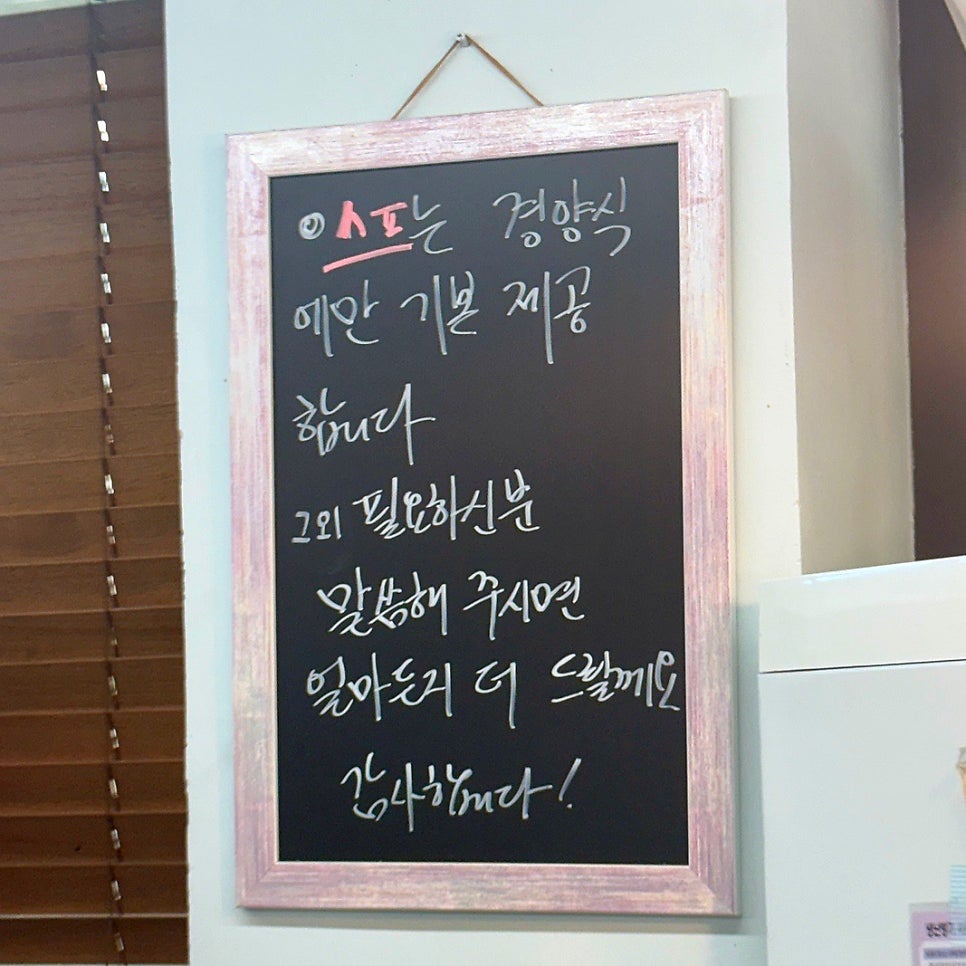 ◉ 스프는 경양식
에만 기본 제공
합니다
그외 필요하신분
말씀해 주시면
얼마든지 더 드랄께요
감사합니다!